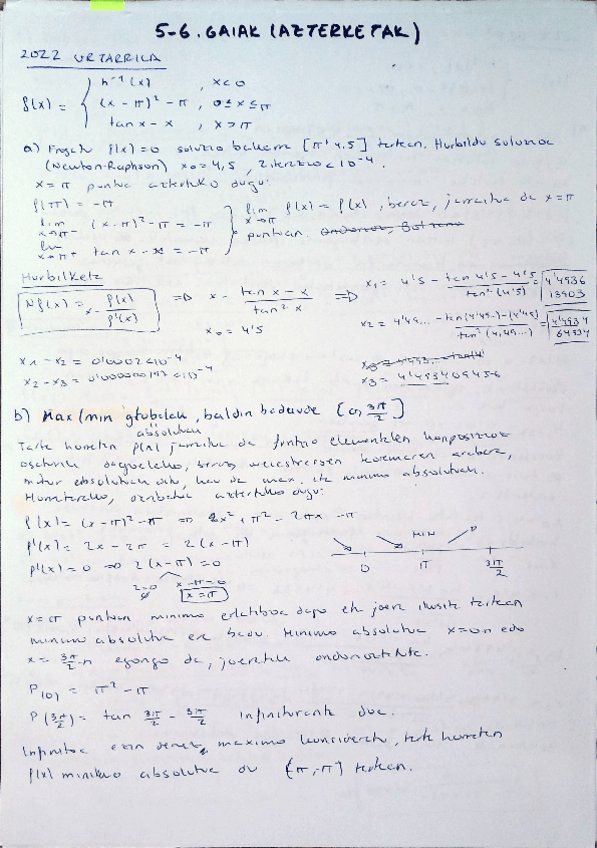 5-6. GAIAK (AZTERKETAK)
2022 URTARRILA
f(x) = { h⁻¹(x) , x<0
(x-π)² - π , 0≤x≤π
tan x - x , x>π
a) Frogatu f(x)=0 soluzio bakarra [π, 4,5] tartean. Hurbildu soluzioa
(Newton-Raphson) x₀=4,5, <10⁻⁴.
x=π puntua aztertuko dugu:
f(π) = -π
lim x→π⁻ (x-π)² - π = -π
lim x→π⁺ tan x - x = -π
lim x→π f(x) = f(x), beraz, jarraitua da x=π
puntuan.
Hurbilketa
Nf(x) = x - f(x)/f'(x) => x - (tan x - x)/tan² x =>
x₀ = 4'5
x₁ = 4'5 - (tan 4'5 - 4'5)/tan²(4'5) = 4'4936 13903
x₂ = 4'49... - (tan(4'49..)-(4'49))/tan²(4,49...) = 4'4934 64934
x₁-x₂ = 0'0002 <10⁻⁴
x₂-x₃ = <10⁻⁴
x₃ = 4'493409456
b) Max/min globalak, baldin badaude [0, 3π/2]
absolutuak
Tarte horretan f(x) jarraitua da funtzio elementalen konposizioz
osaturik dagoelako, beraz weierstrassen teoremaren arabera,
mutur absolutuak ditu, hau da max. eta minimo absolutuak.
Horretarako, deribatua aztertuko dugu:
f(x) = (x-π)² - π => x² + π² - 2πx - π
f'(x) = 2x - 2π = 2(x-π)
f'(x) = 0 => 2(x-π) = 0
2=0 x-π=0
∅ x=π
MIN
0 π 3π/2
x=π puntuan minimo erlatiboa dago eta joera ikusita tartean
minimo absolutua ere bada. Minimo absolutua x=0n edo
x = 3π/2-n egongo da, joeratik ondorioztatuta.
f(0) = π² - π
f(3π/2) = tan 3π/2 - 3π/2 infiniturantz doa.
Infinitua ezin denez maximo kontsideratu, tarte horretan
f(x) minimo absolutua du (π,-π) tartean.